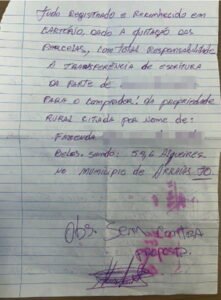 Tudo Registrado e Reconhecido em
CARTÓRIO, DADO A QUITAÇÃO DAS
PARCELAS, COM TOTAL Responsabilidade
A TRANSFERÊNCIA DE ESCRITURA
DA PARTE DE
PARA O COMPRADOR! DA PROPRIEDADE
RURAL CITADA POR NOME DE:
FAZENDA
Belos. Sendo: 53,6 Alqueires
NO MUNICÍPIO DE ARRAIAS TO.
Obs. Sem CONTRA
PROPOSTA.